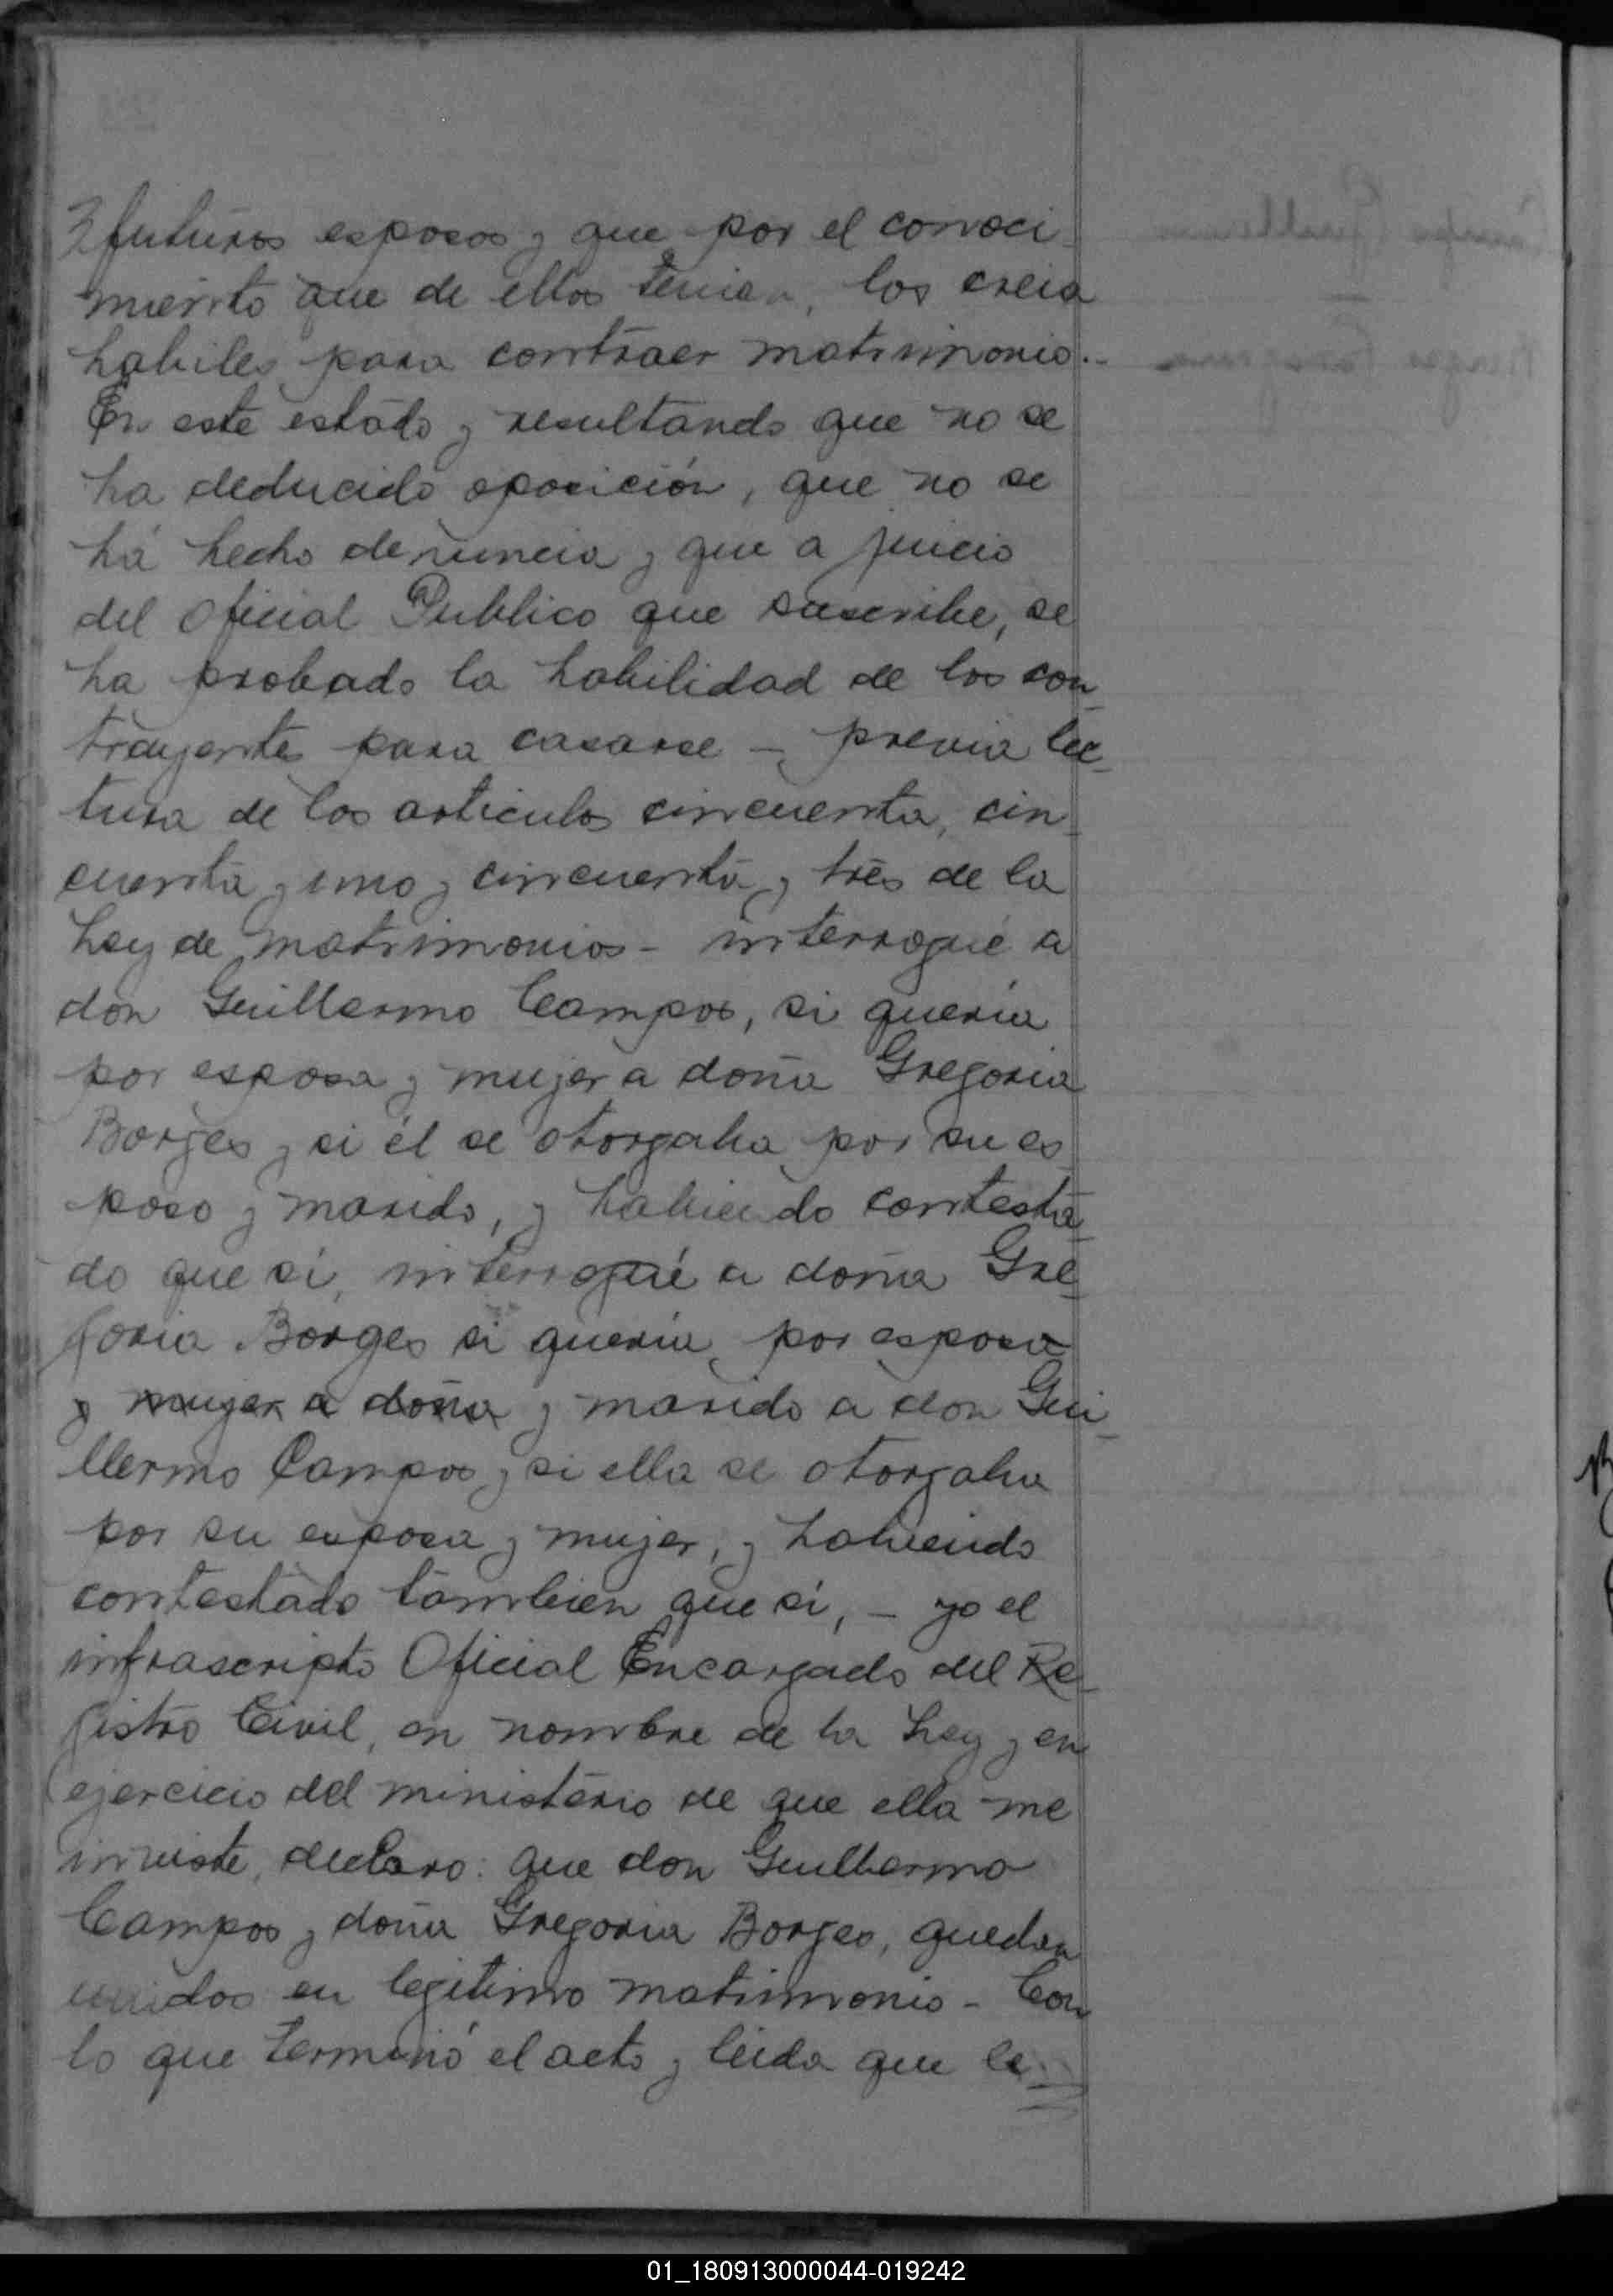 futuros esposos y que por el conoci-
miento que de ellos tenian, los creia
habiles para contraer matrimonio.-
En este estado y resultando que no se
ha deducido oposición, que no se
há hecho denuncia y que a juicio
del Oficial Publico que suscribe, se
ha probado la habilidad de los con-
trayentes para casarse - previa lec-
tura de los articulos cincuenta, cin-
cuenta y uno y cincuenta y tres de la
Ley de matrimonios - interrogué a
don Guillermo Campos, si queria
por esposa y mujer a doña Gregoria
Borges y si él se otorgaba por su es-
poso y marido, y habiendo contesta-
do que si, interrogué a doña Gre-
goria Borges si queria por esposa
y mujer a doña y marido a don Gui-
llermo Campos y si ella se otorgaba
por su esposa y mujer, y habiendo
contestado tambien que si, - yo el
infrascripto Oficial Encargado del Re-
gistro Civil, en nombre de la Ley y en
ejercicio del ministerio de que ella me
inviste, declaro: que don Guillermo
Campos y doña Gregoria Borges, quedan
unidos en legitimo matrimonio - Con
lo que terminó el acto y leida que le
01_180913000044-019242